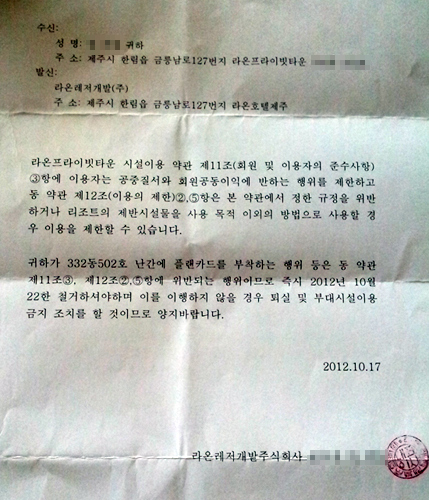 수신:
성 명: 귀하
주 소: 제주시 한림읍 금릉남로127번지 라온프라이빗타운
발신:
라온레저개발(주)
주 소: 제주시 한림읍 금릉남로127번지 라온호텔제주
라온프라이빗타운 시설이용 약관 제11조(회원 및 이용자의 준수사항)
③항에 이용자는 공중질서와 회원공동이익에 반하는 행위를 제한하고
동 약관 제12조(이용의 제한)②,⑤항은 본 약관에서 정한 규정을 위반
하거나 리조트의 제반시설물을 사용 목적 이외의 방법으로 사용할 경
우 이용을 제한할 수 있습니다.
귀하가 332동502호 난간에 플랜카드를 부착하는 행위 등은 동 약관
제11조③, 제12조②,⑤항에 위반되는 행위이므로 즉시 2012년 10월
22한 철거하셔야하며 이를 이행하지 않을 경우 퇴실 및 부대시설이용
금지 조치를 할 것이므로 양지바랍니다.
2012.10.17
라온레저개발주식회사